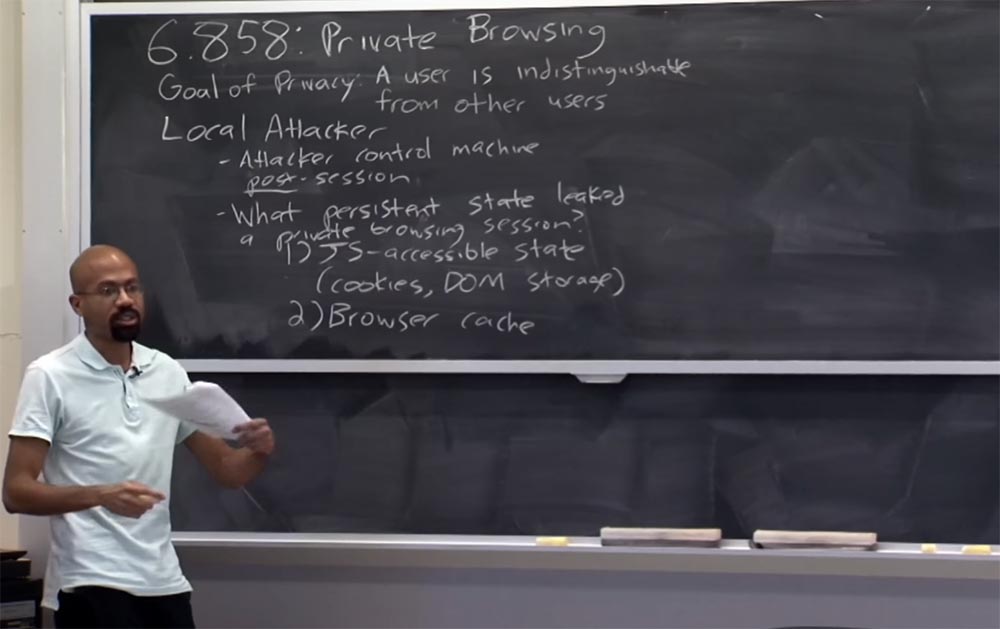 6.858: Private Browsing
Goal of Privacy: A user is indistinguishable
from other users
Local Attacker
- Attacker control machine
post-session
- What persistent state leaked
a private browsing session?
1) JS-accessible state
(cookies, DOM storage)
2) Browser cache